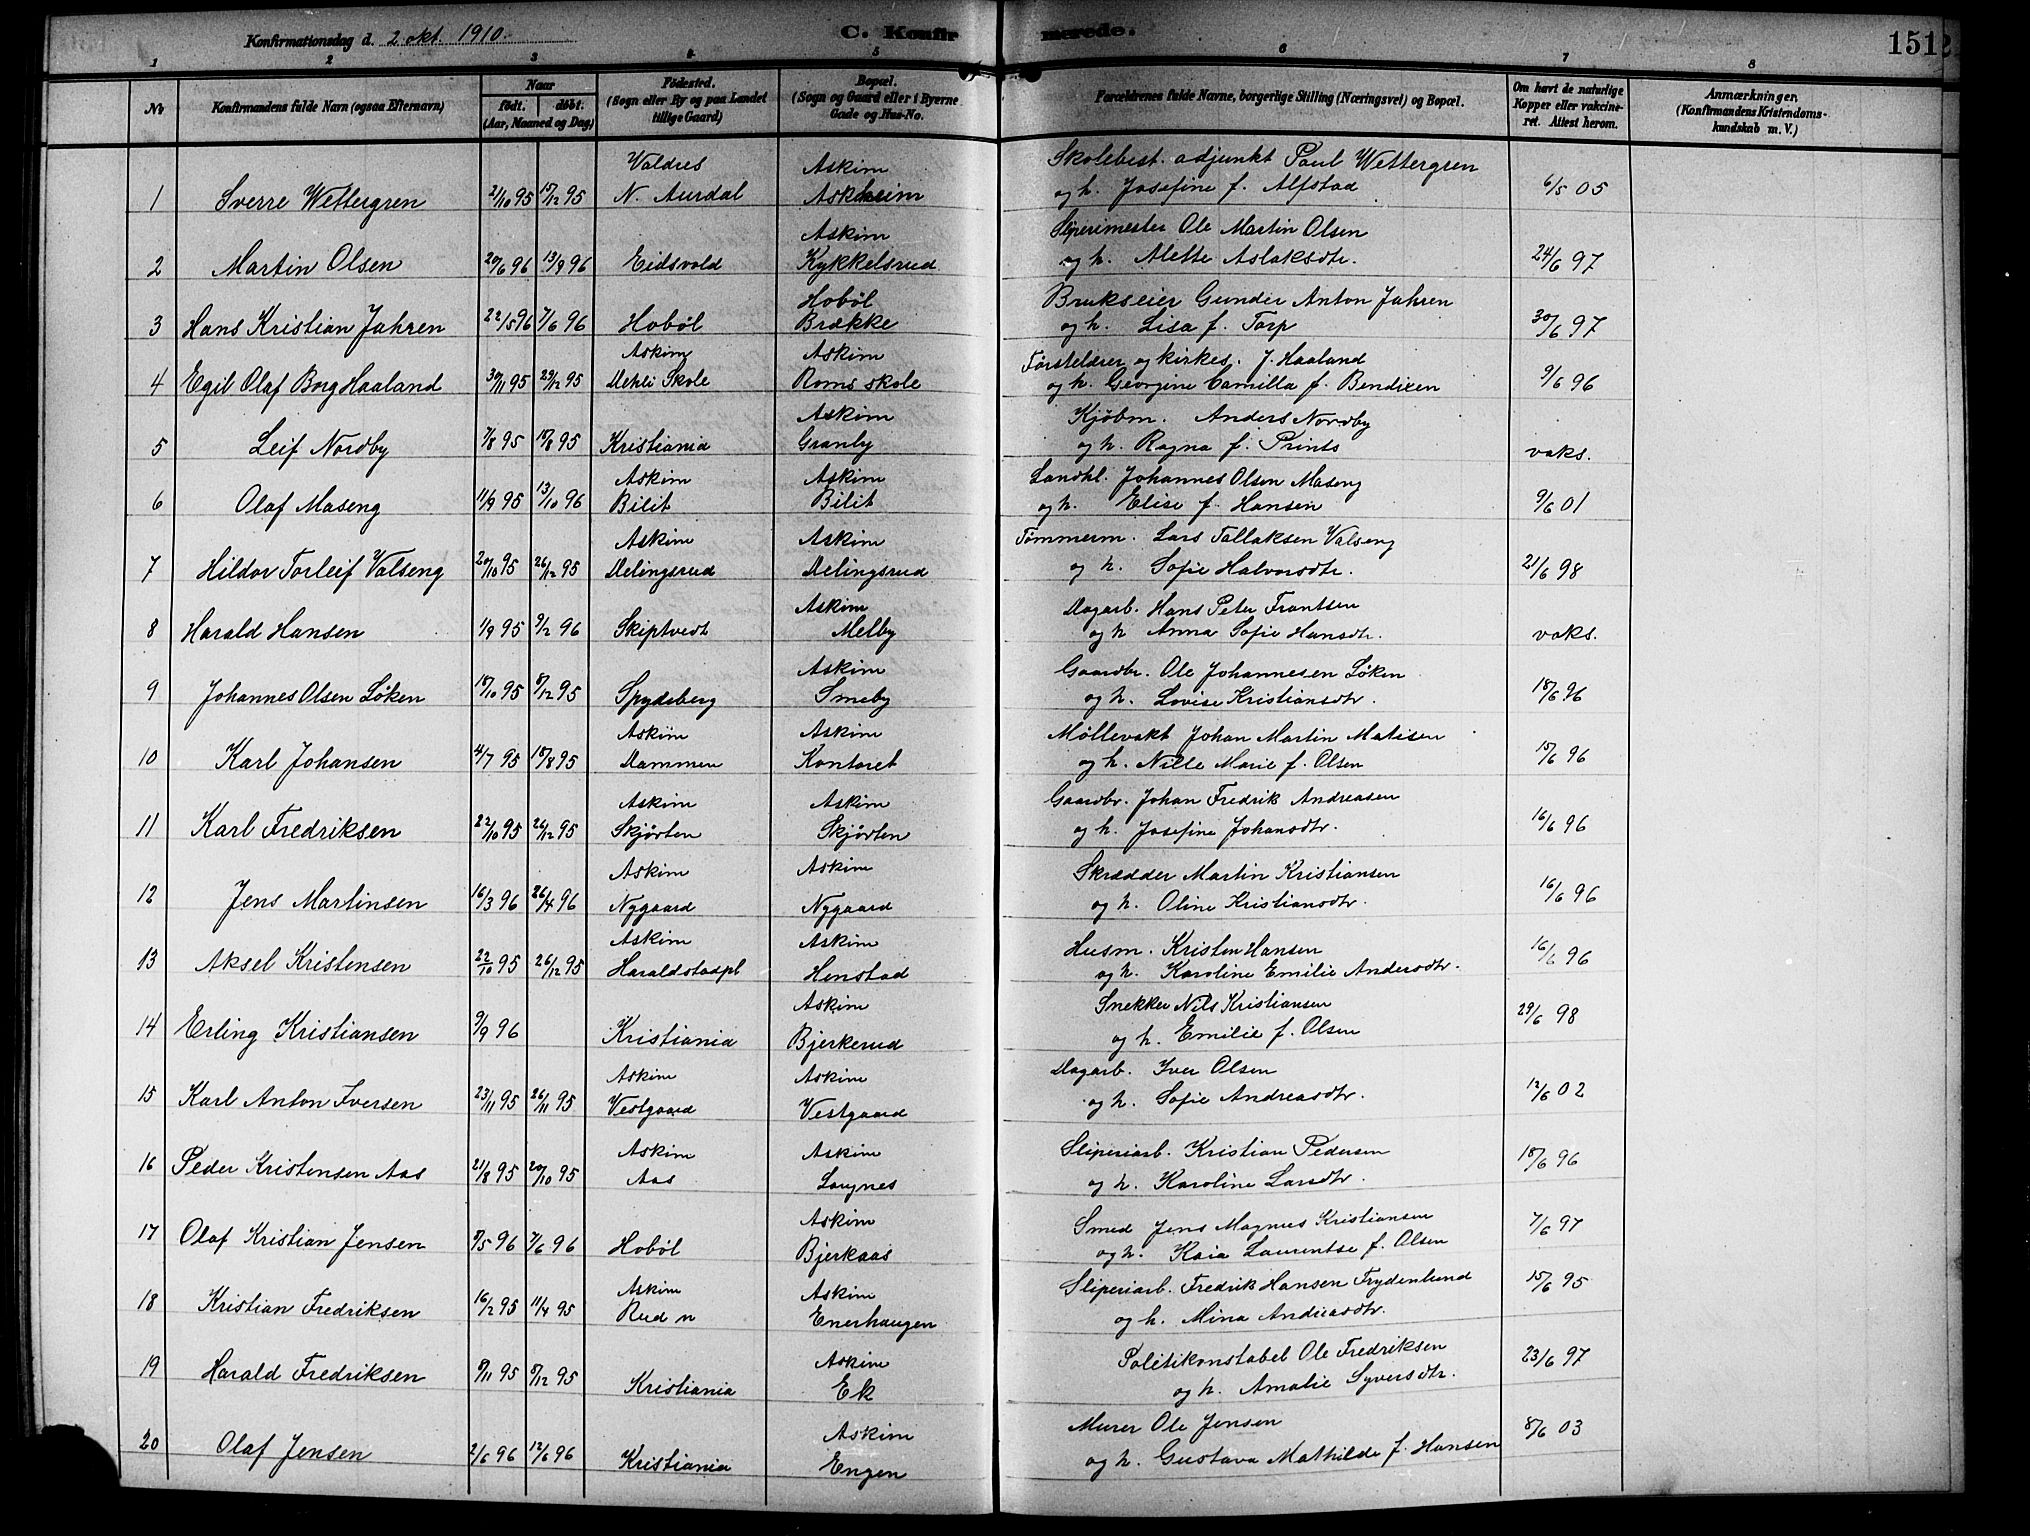 Konfirmationsdag d. 2 okt. 1910.
C. Konfirmerede.
1512
1 2 3 4 5 6 7 8
No
Konfirmandens fulde Navn (ogsaa Efternavn)
Naar
födt. döbt.
(Aar, Maaned og Dag)
Födested.
(Sogn eller By og paa Landet
tillige Gaard)
Bopæl.
(Sogn og Gaard eller i Byerne
Gade og Hus-No.
Forældrenes fulde Navne, borgerlige Stilling (Næringsvei) og Bopæl.
Om havt de naturlige
Kopper eller vakcine-
ret. Attest herom.
Anmærkninger.
(Konfirmandens Kristendoms-
kundskab m. V.)
Valdres Askim Skolebest. adjunkt Paul Wettergren
1 Sverre Wettergren 2/10 95 15/12 95 N. Aurdal Askheim og h. Josefine f. Alfstad 6/5 05
Askim Sliperimester Ole Martin Olsen
2 Martin Olsen 20/6 96 13/9 96 Eidsvold Kykkelsrud og h. Alette Aslaksdtr. 24/6 97
Hobøl Brukseier Gunder Anton Jahren
3 Hans Kristian Jahren 22/5 96 7/6 96 Hobøl Brække og h. Lisa f. Torp 30/6 97
Askim Askim Førstelærer og kirkes. J. Haaland
4 Egil Olaf Borg Haaland 30/11 95 29/12 95 Dehli Skole Roms skole og h. Georgine Camilla f. Bendixen 9/6 96
Askim Kjøbm. Anders Nordby
5 Leif Nordby 7/8 95 18/8 95 Kristiania Granly og h. Ragna f. Prints vaks.
Askim Askim Landhl. Johannes Olsen Maseng
6 Olaf Maseng 11/9 95 13/10 96 Bilit Bilit og h. Elise f. Hansen 9/6 01
Askim Askim Tømmerm. Lars Tallaksen Valseng
7 Hildor Torleif Valseng 20/10 95 26/12 95 Delingsrud Delingsrud og h. Sofie Halvorsdtr. 21/6 98
Askim Dagarb. Hans Peter Frantsen
8 Harald Hansen 1/9 95 9/2 96 Skiptvedt Melby og h. Anna Sofie Hansdtr. vaks.
Askim Gaardbr. Ole Johannesen Løken
9 Johannes Olsen Løken 18/10 95 8/12 95 Spydeberg Smeby og h. Lovise Kristiansdtr. 18/6 96
Askim Askim Møllevakt Johan Martin Matisen
10 Karl Johansen 4/7 95 18/8 95 Dammen Kontoret og h. Nille Marie f. Olsen 15/6 96
Askim Askim Gaardbr. Johan Fredrik Andreasen
11 Karl Fredriksen 22/10 95 26/12 95 Skjørten Skjørten og h. Josefine Johansdtr. 16/6 96
Askim Askim Skrædder Martin Kristiansen
12 Jens Martinsen 16/3 96 26/4 96 Nygaard Nygaard og h. Oline Kristiansdtr. 16/6 96
Askim Askim Husm. Kristen Hansen
13 Aksel Kristensen 22/10 95 26/12 95 Haraldstadpl Henstad og h. Karoline Emilie Andersdtr. 16/6 96
Askim Snekker Nils Kristiansen
14 Erling Kristiansen 9/9 96 Kristiania Bjerkerud og h. Emilie f. Olsen 29/6 98
Askim Askim Dagarb. Iver Olsen
15 Karl Anton Iversen 23/11 95 26/11 95 Vestgaard Vestgaard og h. Sofie Andreasdtr. 12/6 02
Askim Askim Sliperiarb. Kristian Pedersen
16 Peder Kristensen Aas 21/8 95 20/10 95 Aas Langnes og h. Karoline Larsdtr. 18/6 96
Askim Smed Jens Magnus Kristiansen
17 Olaf Kristian Jensen 9/5 96 7/6 96 Hobøl Bjerkaas og h. Kaia Laurentse f. Olsen 7/6 97
Askim Askim Sliperiarb. Fredrik Hansen Frydenlund
18 Kristian Fredriksen 16/2 95 11/4 95 Rud n Enerhaugen og h. Mina Andreasdtr. 15/6 95
Askim Politikonstabel Ole Fredriksen
19 Harald Fredriksen 9/11 95 8/12 95 Kristiania Ek og h. Amalie Syversdtr. 23/6 97
Askim Murer Ole Jensen
20 Olaf Jensen 2/6 96 12/6 96 Kristiania Engen og h. Gustava Mathilde f. Hansen 8/6 03